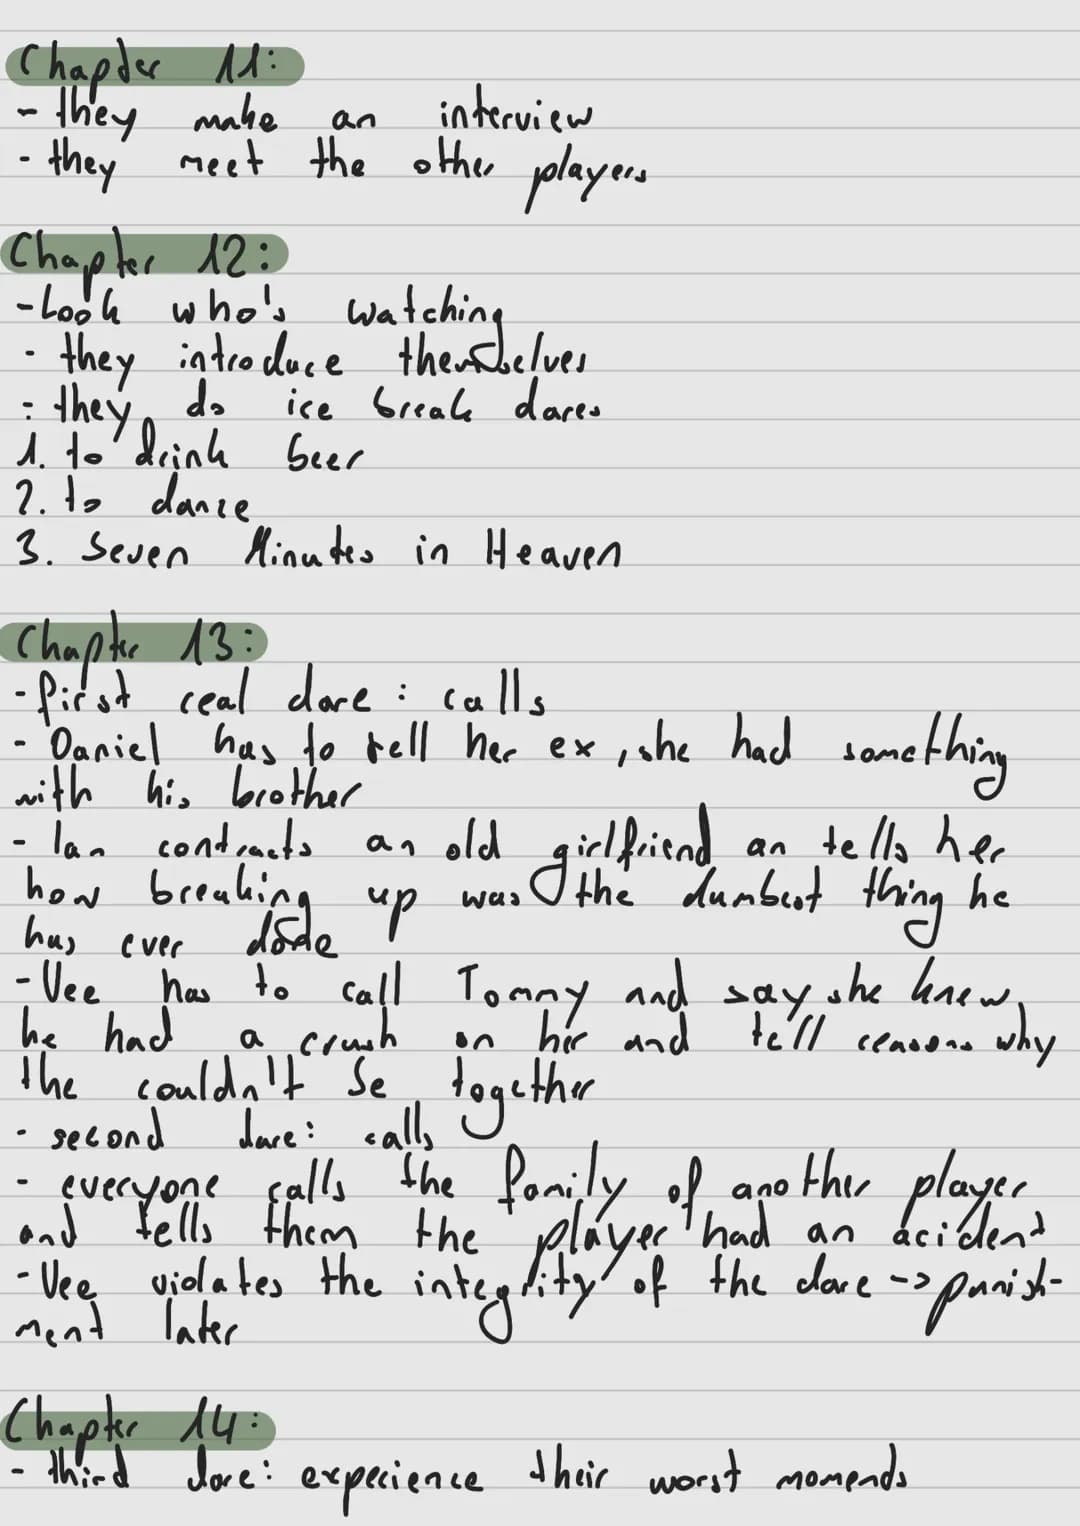 Chapder 11:
- they make an interview
- they meet the other players
Chapter 12:
- Look who's watching
- they introduce themselves
- they do ice break dares
1. to drink beer
2. to dance
3. Seven Minutes in Heaven
Chapter 13:
- first real dare: calls
- Daniel has to tell her ex, she had something
with his brother
- Ian contracts an old girlfriend an tells her
how breaking up was the dumbest thing he
has ever done
- Vee has to call Tommy and say she knew,
he had a crush on her and tell reasons why
the couldn't be together
- second dare: calls
- everyone calls the family of another player
and tells them the player had an acident
- Vee violates the integrity of the dare -> punish-
ment later
Chapter 14:
- third dare: experience their worst momends